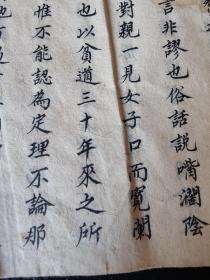 言非謬也俗話說嘴濶陰
對親一見女子口而寬闊
也以貧道三十年來之所
惟不能認為定理不論那